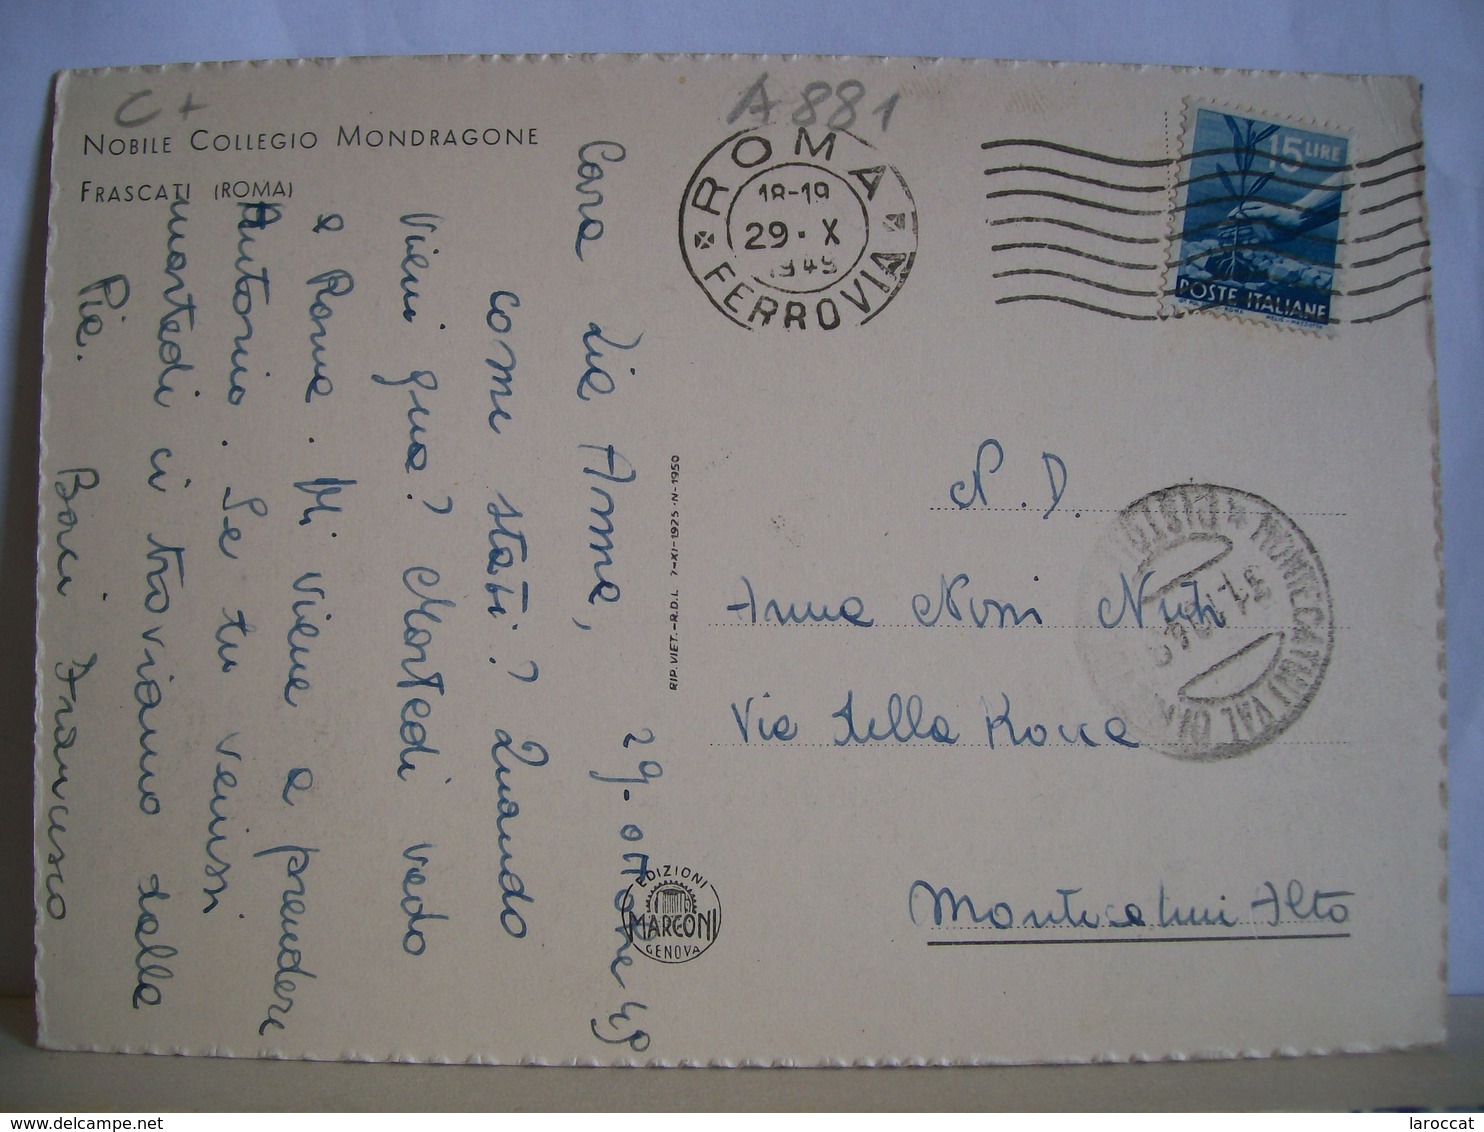 C+
A 881
NOBILE COLLEGIO MONDRAGONE
FRASCATI (ROMA)
29. ottobre 49
Cara Zia Anna,
come stati? Quando
vieni qua? Martedi vado
a Roma. Mi viene a prendere
Antonio. Se tu venissi
martedi ci troviamo dalla
Pia.
Baci Francesco
RIP. VIET.-R.D.L. 7-XI-1925-N-1950
EDIZIONI
MARCONI
GENOVA
ROMA
18-19
29 · X
1949
FERROVIA
15 LIRE
POSTE ITALIANE
N. D.
Anna Noni
Via della Rocca
Montecatini Alto
MONTECATINI VAL DI
PISTOIA
laroccat
delcampe.net